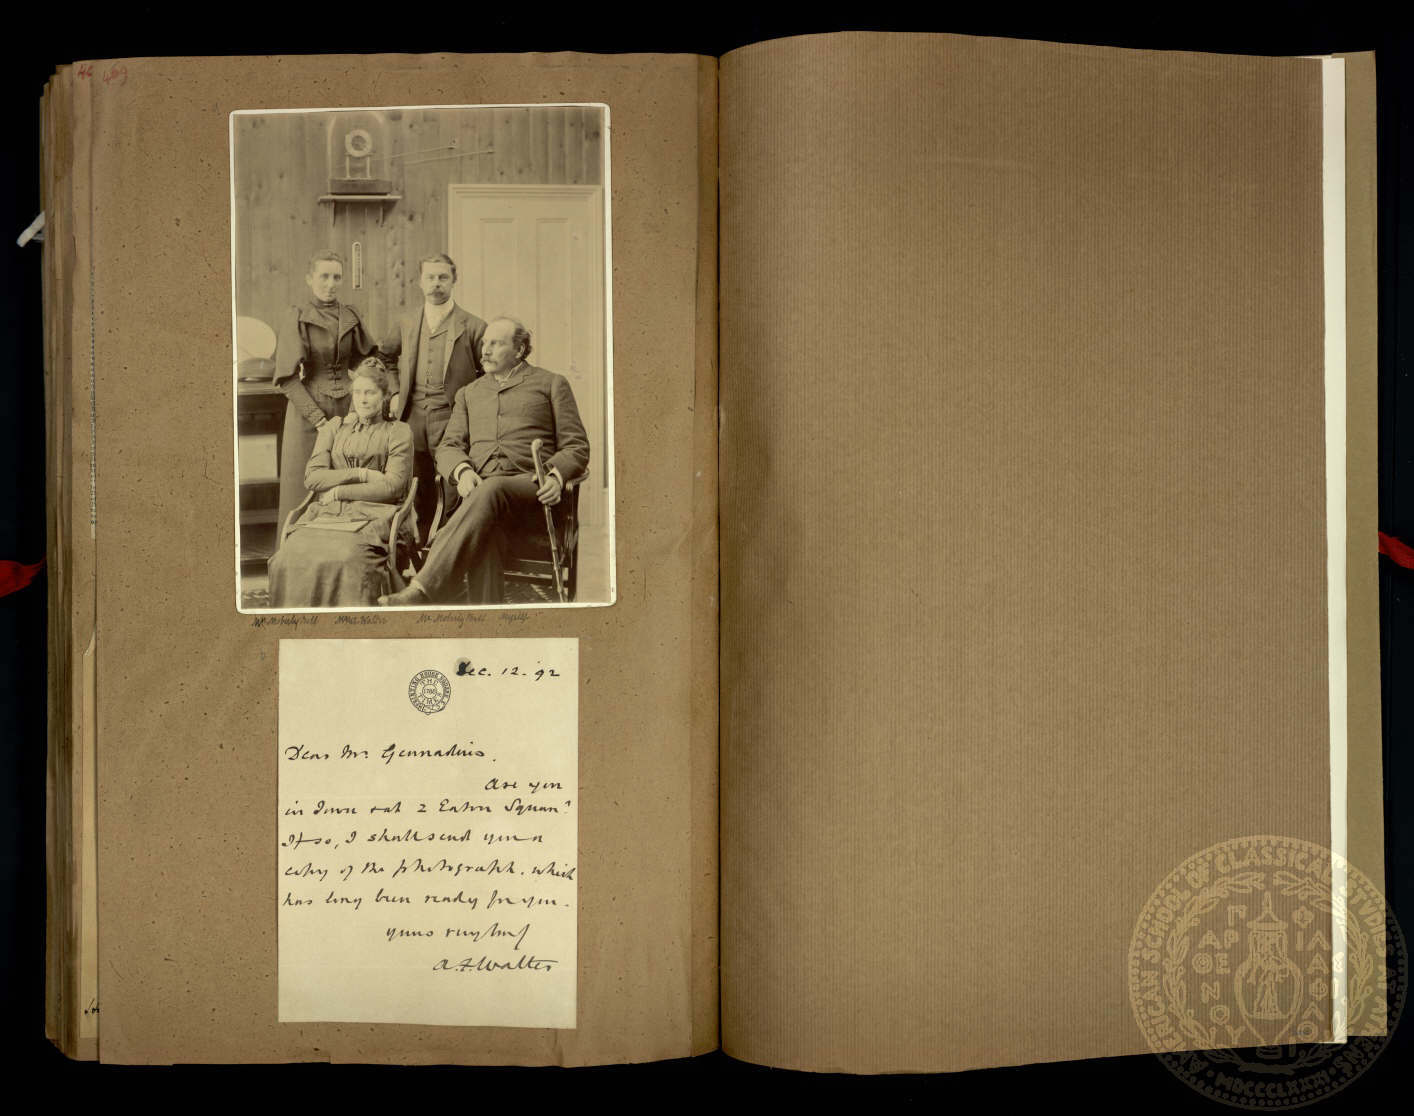 469
Mrs Moberly Bell Mrs Walter Mr Moberly Bell Myself
Dec. 12. 92
PRINTING HOUSE SQUARE
THE
1788
TIMES
Dear Mr. Gennadius.
Are you
in Town & at 2 Eaton Square?
If so, I shall send you a
copy of the photograph. which
has long been ready for you.
yours very truly
A.F. Walter
AMERICAN SCHOOL OF CLASSICAL STUDIES AT ATHENS
ΠΑΡΘΕΝΟΥ ΦΙΛΑΣ ΦΙΛΑΙ
MDCCCLXXXI